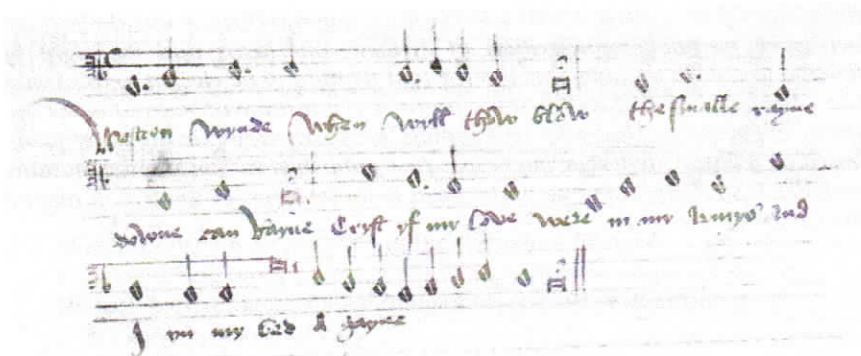 Westron wynde when wyll thow blow the smalle rayne
downe can rayne Cryst yf my love were in my armys and
I yn my bed A gayne